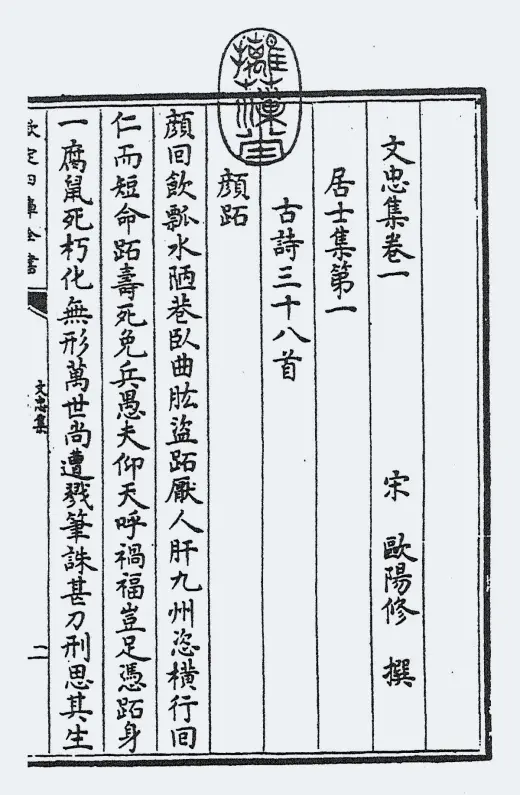 文忠集卷一 宋 歐陽修 撰
居士集第一
古詩三十八首
顔跖
顔回飲瓢水陋巷臥曲肱盜跖厭人肝九州恣橫行回
仁而短命跖壽死免兵愚夫仰天呼禍福豈足憑跖身
一腐鼠死朽化無形萬世尚遭戮筆誅甚刀刑思其生
欽定四庫全書
文忠集
二